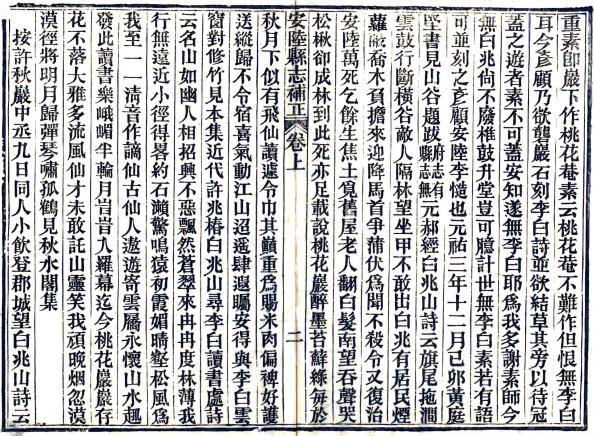 重素即巖下作桃花菴素云桃花菴不難作但恨無李白
耳今彥顧乃欲礱巖石刻李白詩並欲結草其旁以待冠
蓋之遊者素不可蓋安知遂無李白耶為我多謝素師今
無白兆尚不廢椎鼓升堂豈可臆計世無李白素若有語
可並刻之彥顧安陸李慥也元祐三年十二月己卯黃庭
堅書見山谷題跋府志有縣志無元郝經白兆山詩云旗尾拖澗
雲鼓行斷橫谷敵人隔林望坐甲不敢出白兆有居民煙
蘿蔽喬木負擔來迎降馬首爭蒲伏為聞不殺令又復治
安陸萬死乞餘生焦土覓舊屋老人翻白髮南望吞聲哭
松楸卻成林到此死亦足載說桃花巖醉墨苔蘚綠每於
安陸縣志補正 卷上 二
秋月下似有飛仙讀遽令巾其顛重為賜米肉偏裨好護
送縱歸不令宿喜氣動江山迢遙肆遐矚安得與李白雲
窗對修竹見本集近代許兆椿白兆山尋李白讀書處詩
云名山如幽人相招興不惡飄然蒼翠來冉冉度林薄我
行無遠近小徑得畧約石瀨驚鳴猿初霞媚晴壑松風為
我至一一清音作謫仙古仙人遨遊寄雲屩永懷山水趣
發此讀書樂峨嵋半輪月入羅幕迄今桃花巖巖存
花不落大雅多流風仙才未敢託山靈笑我頑晚烟忽漠
漠徑將明月歸彈琴嘯孤鶴見秋水閣集
按許秋巖中丞九日同人小飲登郡城望白兆山詩云